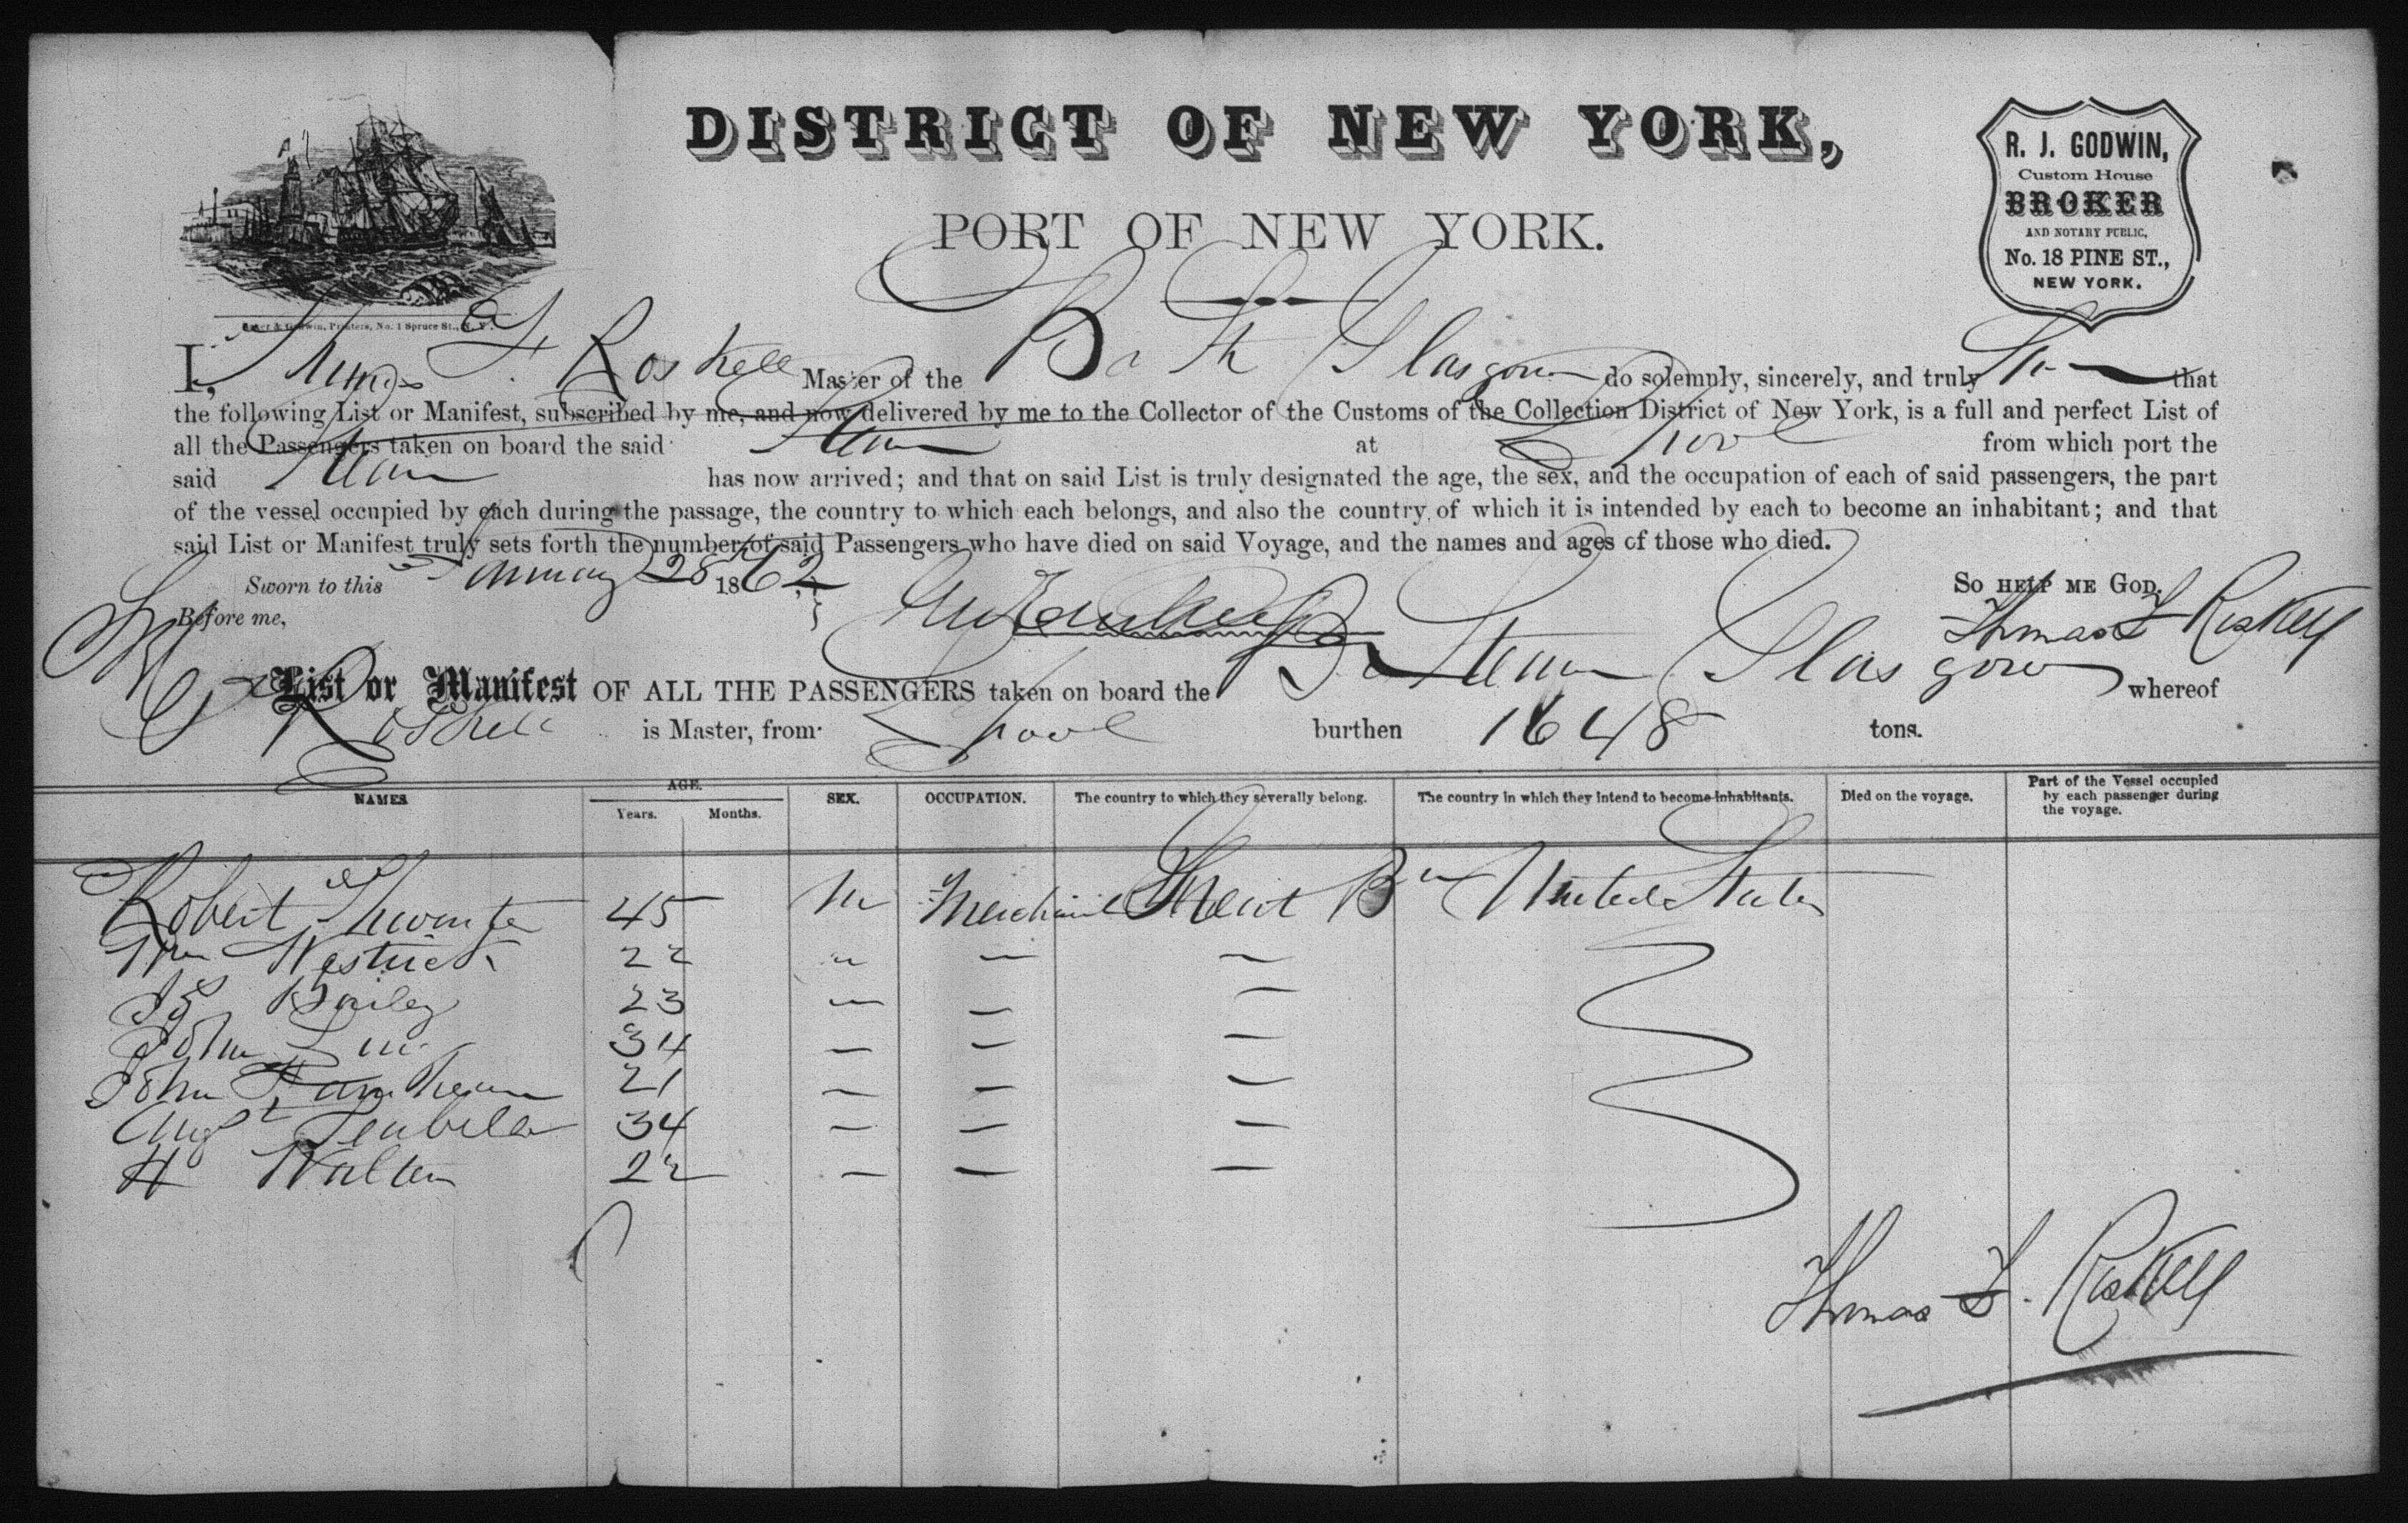 DISTRICT OF NEW YORK,
PORT OF NEW YORK.
R. J. GODWIN,
Custom House
BROKER
AND NOTARY PUBLIC,
No. 18 PINE ST.,
NEW YORK.
Baker & Godwin, Printers, No. 1 Spruce St., N. Y.
I, Thomas F. Roskell Master of the Br Str Glasgow do solemnly, sincerely, and truly that
the following List or Manifest, subscribed by me, and now delivered by me to the Collector of the Customs of the Collection District of New York, is a full and perfect List of
all the Passengers taken on board the said Steam at L'pool from which port the
said Steam has now arrived; and that on said List is truly designated the age, the sex, and the occupation of each of said passengers, the part
of the vessel occupied by each during the passage, the country to which each belongs, and also the country of which it is intended by each to become an inhabitant; and that
said List or Manifest truly sets forth the number of said Passengers who have died on said Voyage, and the names and ages of those who died.
Sworn to this January 28 1862
So help me God.
Before me,
Thomas F Roskell
List or Manifest OF ALL THE PASSENGERS taken on board the Br Steam Glasgow whereof
Roskell is Master, from L'pool burthen 1648 tons.
NAMES AGE. SEX. OCCUPATION. The country to which they severally belong. The country in which they intend to become inhabitants. Died on the voyage. Part of the Vessel occupied by each passenger during the voyage.
Years. Months.
Robert 45 M Merchant Great Bn United States
Wm 22 " — —
Jas Bailey 23 — — —
John 34 — — —
John 21 — — —
Augt 34 — — —
H Walton 22 — — —
Thomas F. Roskell